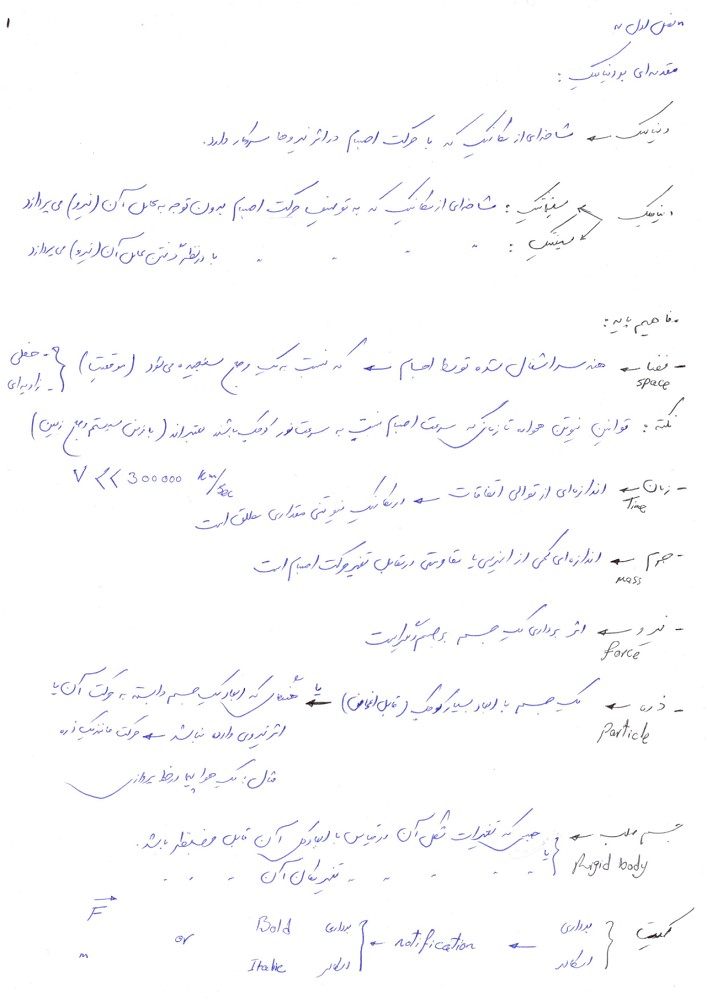 ۱
"فصل اول"
مقدمه‌ای بر دینامیک :
دینامیک ← شاخه‌ای از مکانیک که با حرکت اجسام در اثر نیروها سروکار دارد.
دینامیک سینماتیک : شاخه‌ای از مکانیک که به توصیف حرکت اجسام بدون توجه به عامل آن (نیرو) می‌پردازد
سینتیک : " " " " با در نظر گرفتن عامل آن (نیرو) می‌پردازد
مفاهیم پایه :
- فضا ← هندسه اشغال شده توسط اجسام ← که نسبت به یک مرجع سنجیده می‌شود (موقعیت) { - خطی
space - زاویه‌ای
نکته : قوانین نیوتن همواره تا زمانی که سرعت اجسام نسبت به سرعت نور کوچک باشند معتبرند (با زمین سیستم مرجع زمین)
V << 300000 km/sec
- زمان ← اندازه‌ای از توالی اتفاقات ← در مکانیک نیوتنی مقداری مطلق است
Time
- جرم ← اندازه‌ای کمی از اینرسی یا مقاومتی در مقابل تغییر حرکت اجسام است
mass
- نیرو ← اثر برداری یک جسم بر جسم دیگر است
force
- ذره ← یک جسم با ابعاد بسیار کوچک (قابل اغماض) ← یا هنگامی که ابعاد یک جسم وابسته به حرکت آن یا
Particle اثر نیروی داده نباشد ← حرکت مانند یک ذره
مثال : یک هواپیما در خط پروازی
جسم صلب ← { جسمی که تغییرات شکل آن در قیاس با ابعاد کل آن قابل صرفنظر باشد.
Rigid body یا " " " " تغییر مکان آن " " "
کمیت { برداری ← notification ← { برداری Bold or F
اسکالر اسکالر Italic m